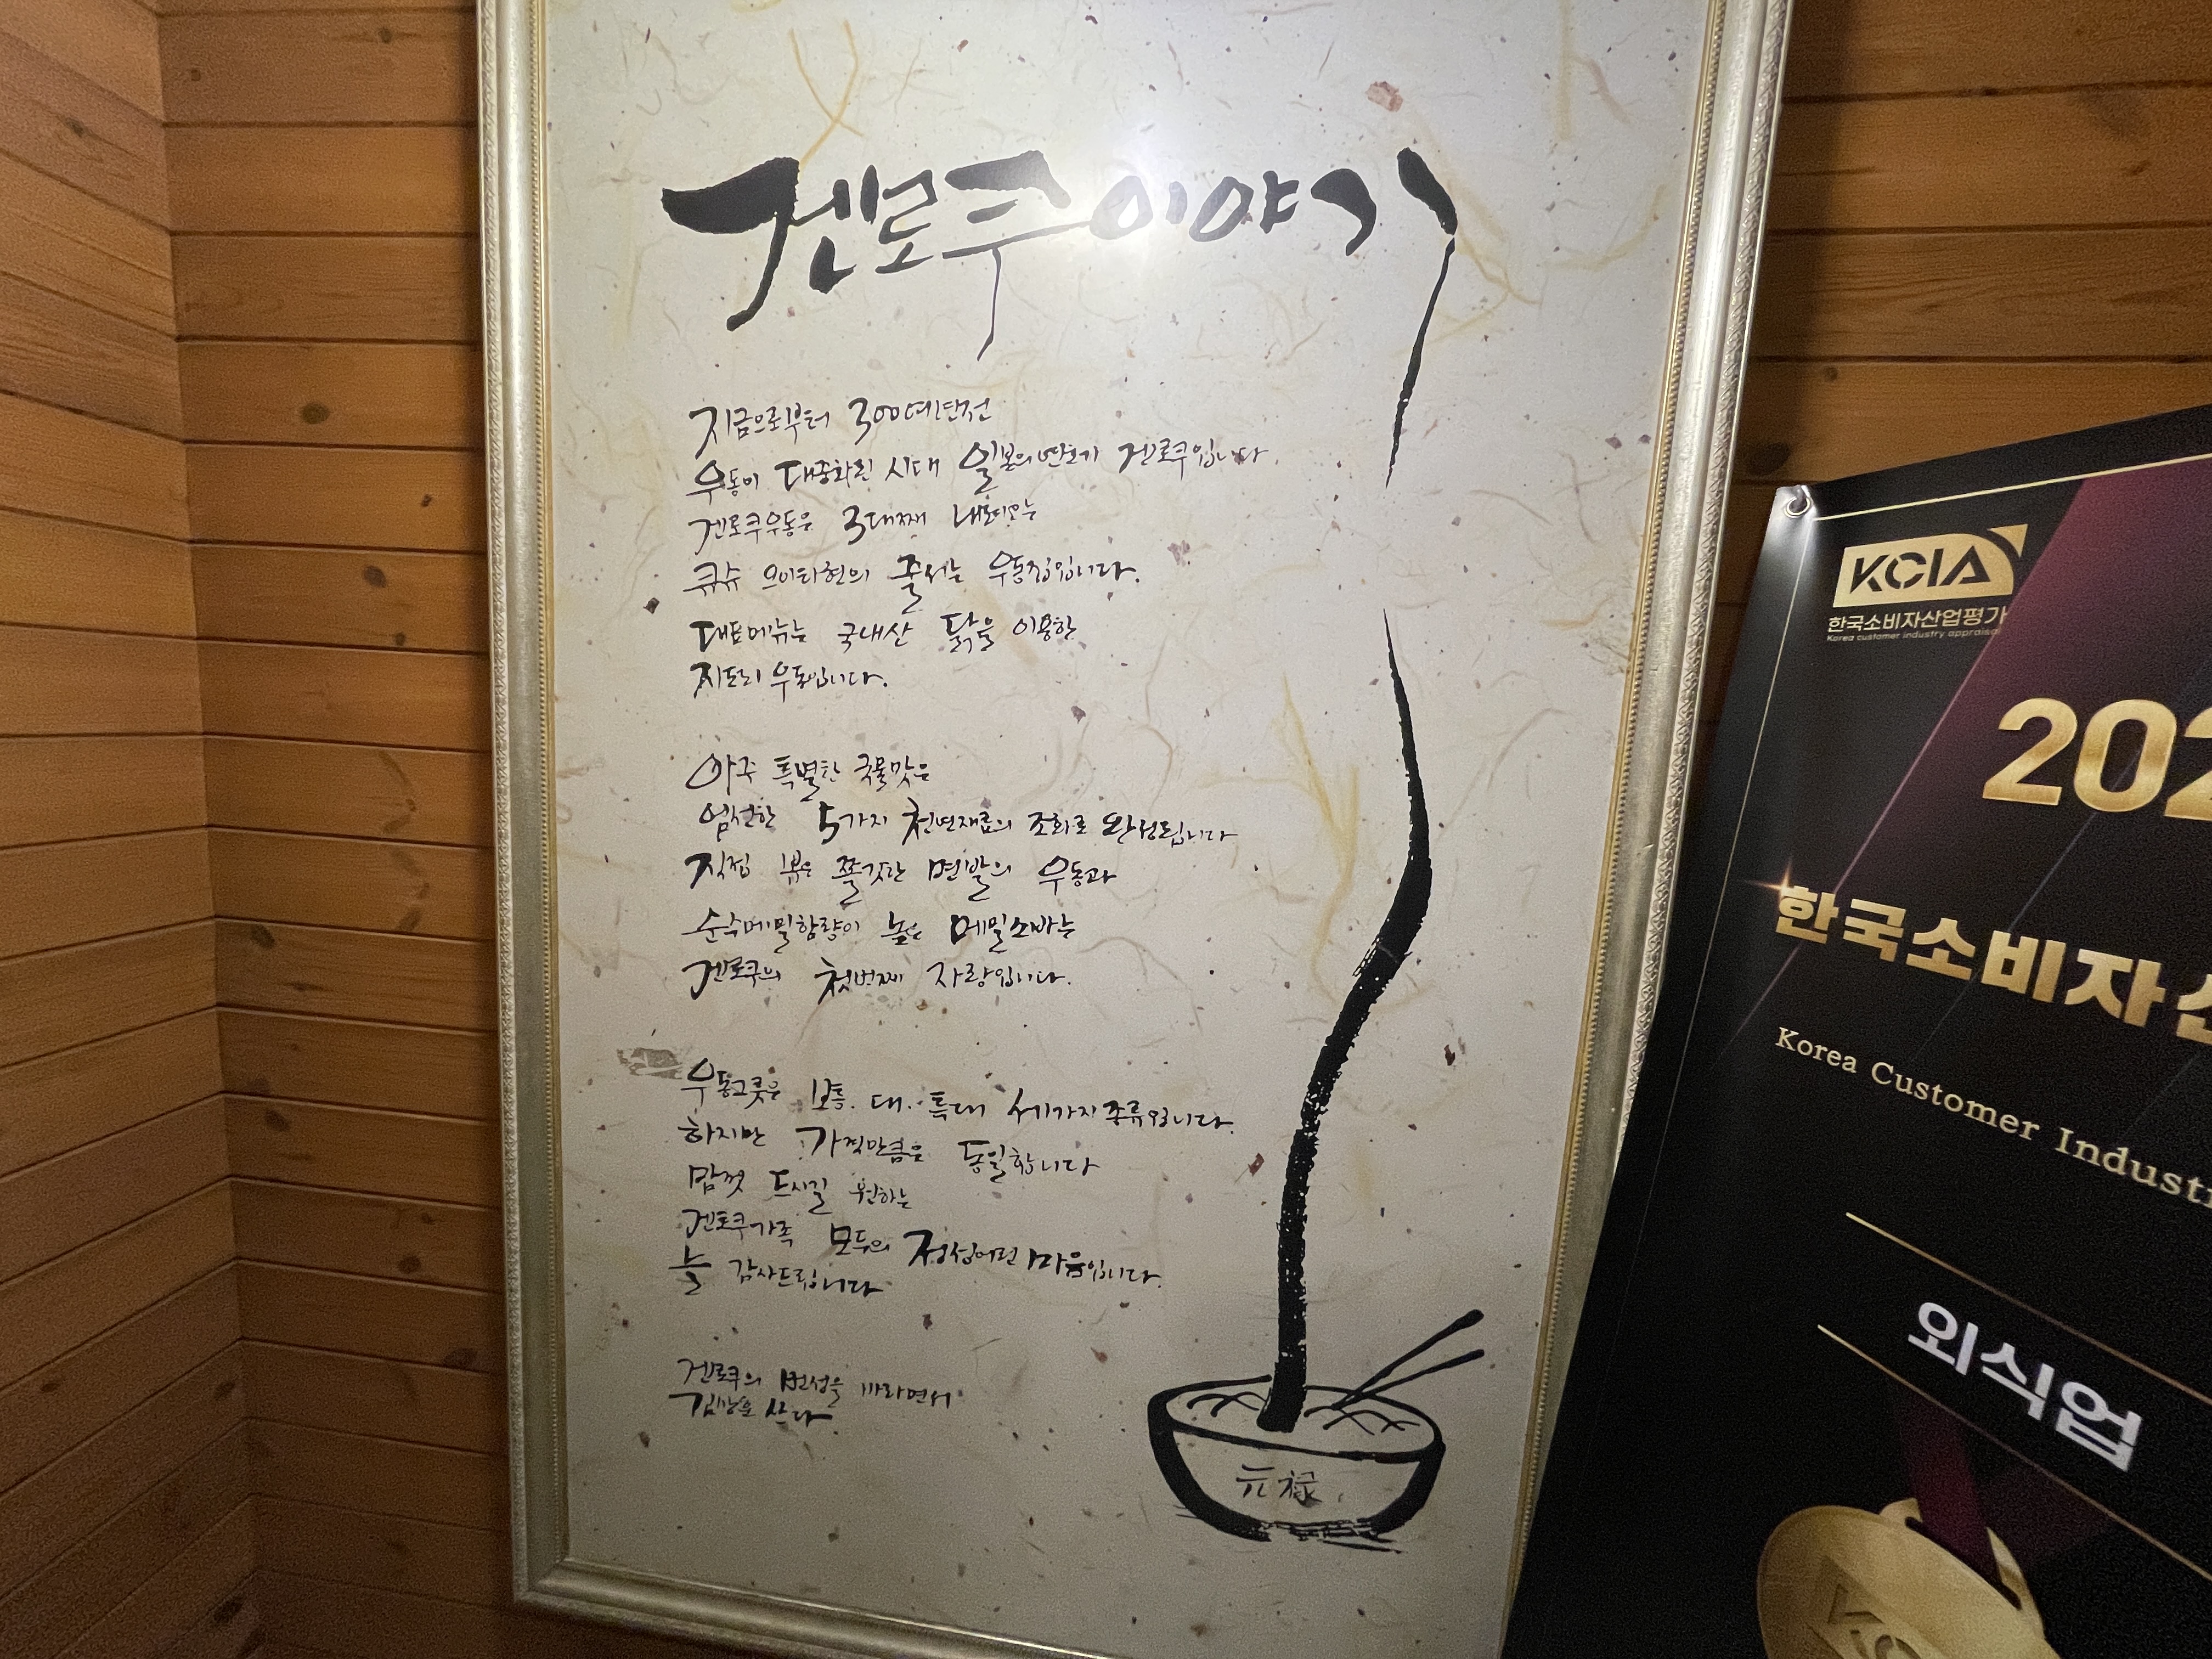 겐로쿠 이야기
지금으로부터 300여년전
우동이 대중화된 시대 일본의 연호가 겐로쿠입니다
겐로쿠우동은 3대째 내려오는
큐슈 오이타현의 줄서는 우동집입니다.
대표메뉴는 국내산 닭을 이용한
지도리 우동입니다.
아주 특별한 국물맛은
엄선한 5가지 천연재료의 조화로 완성됩니다
직접 뽑은 쫄깃한 면발의 우동과
순수메밀함량이 높은 메밀소바는
겐로쿠의 첫번째 자랑입니다.
우동그릇은 보통. 대. 특대 세가지 종류입니다.
하지만 가격만큼은 동일합니다
맘껏 드시길 원하는
겐로쿠가족 모두의 정성어린 마음입니다.
늘 감사드립니다
겐로쿠의 번성을 바라면서
쓰다
元禄
KCIA
한국소비자산업평가
Korea customer industry appraisal
202
한국소비자산
Korea Customer Indust
외식업